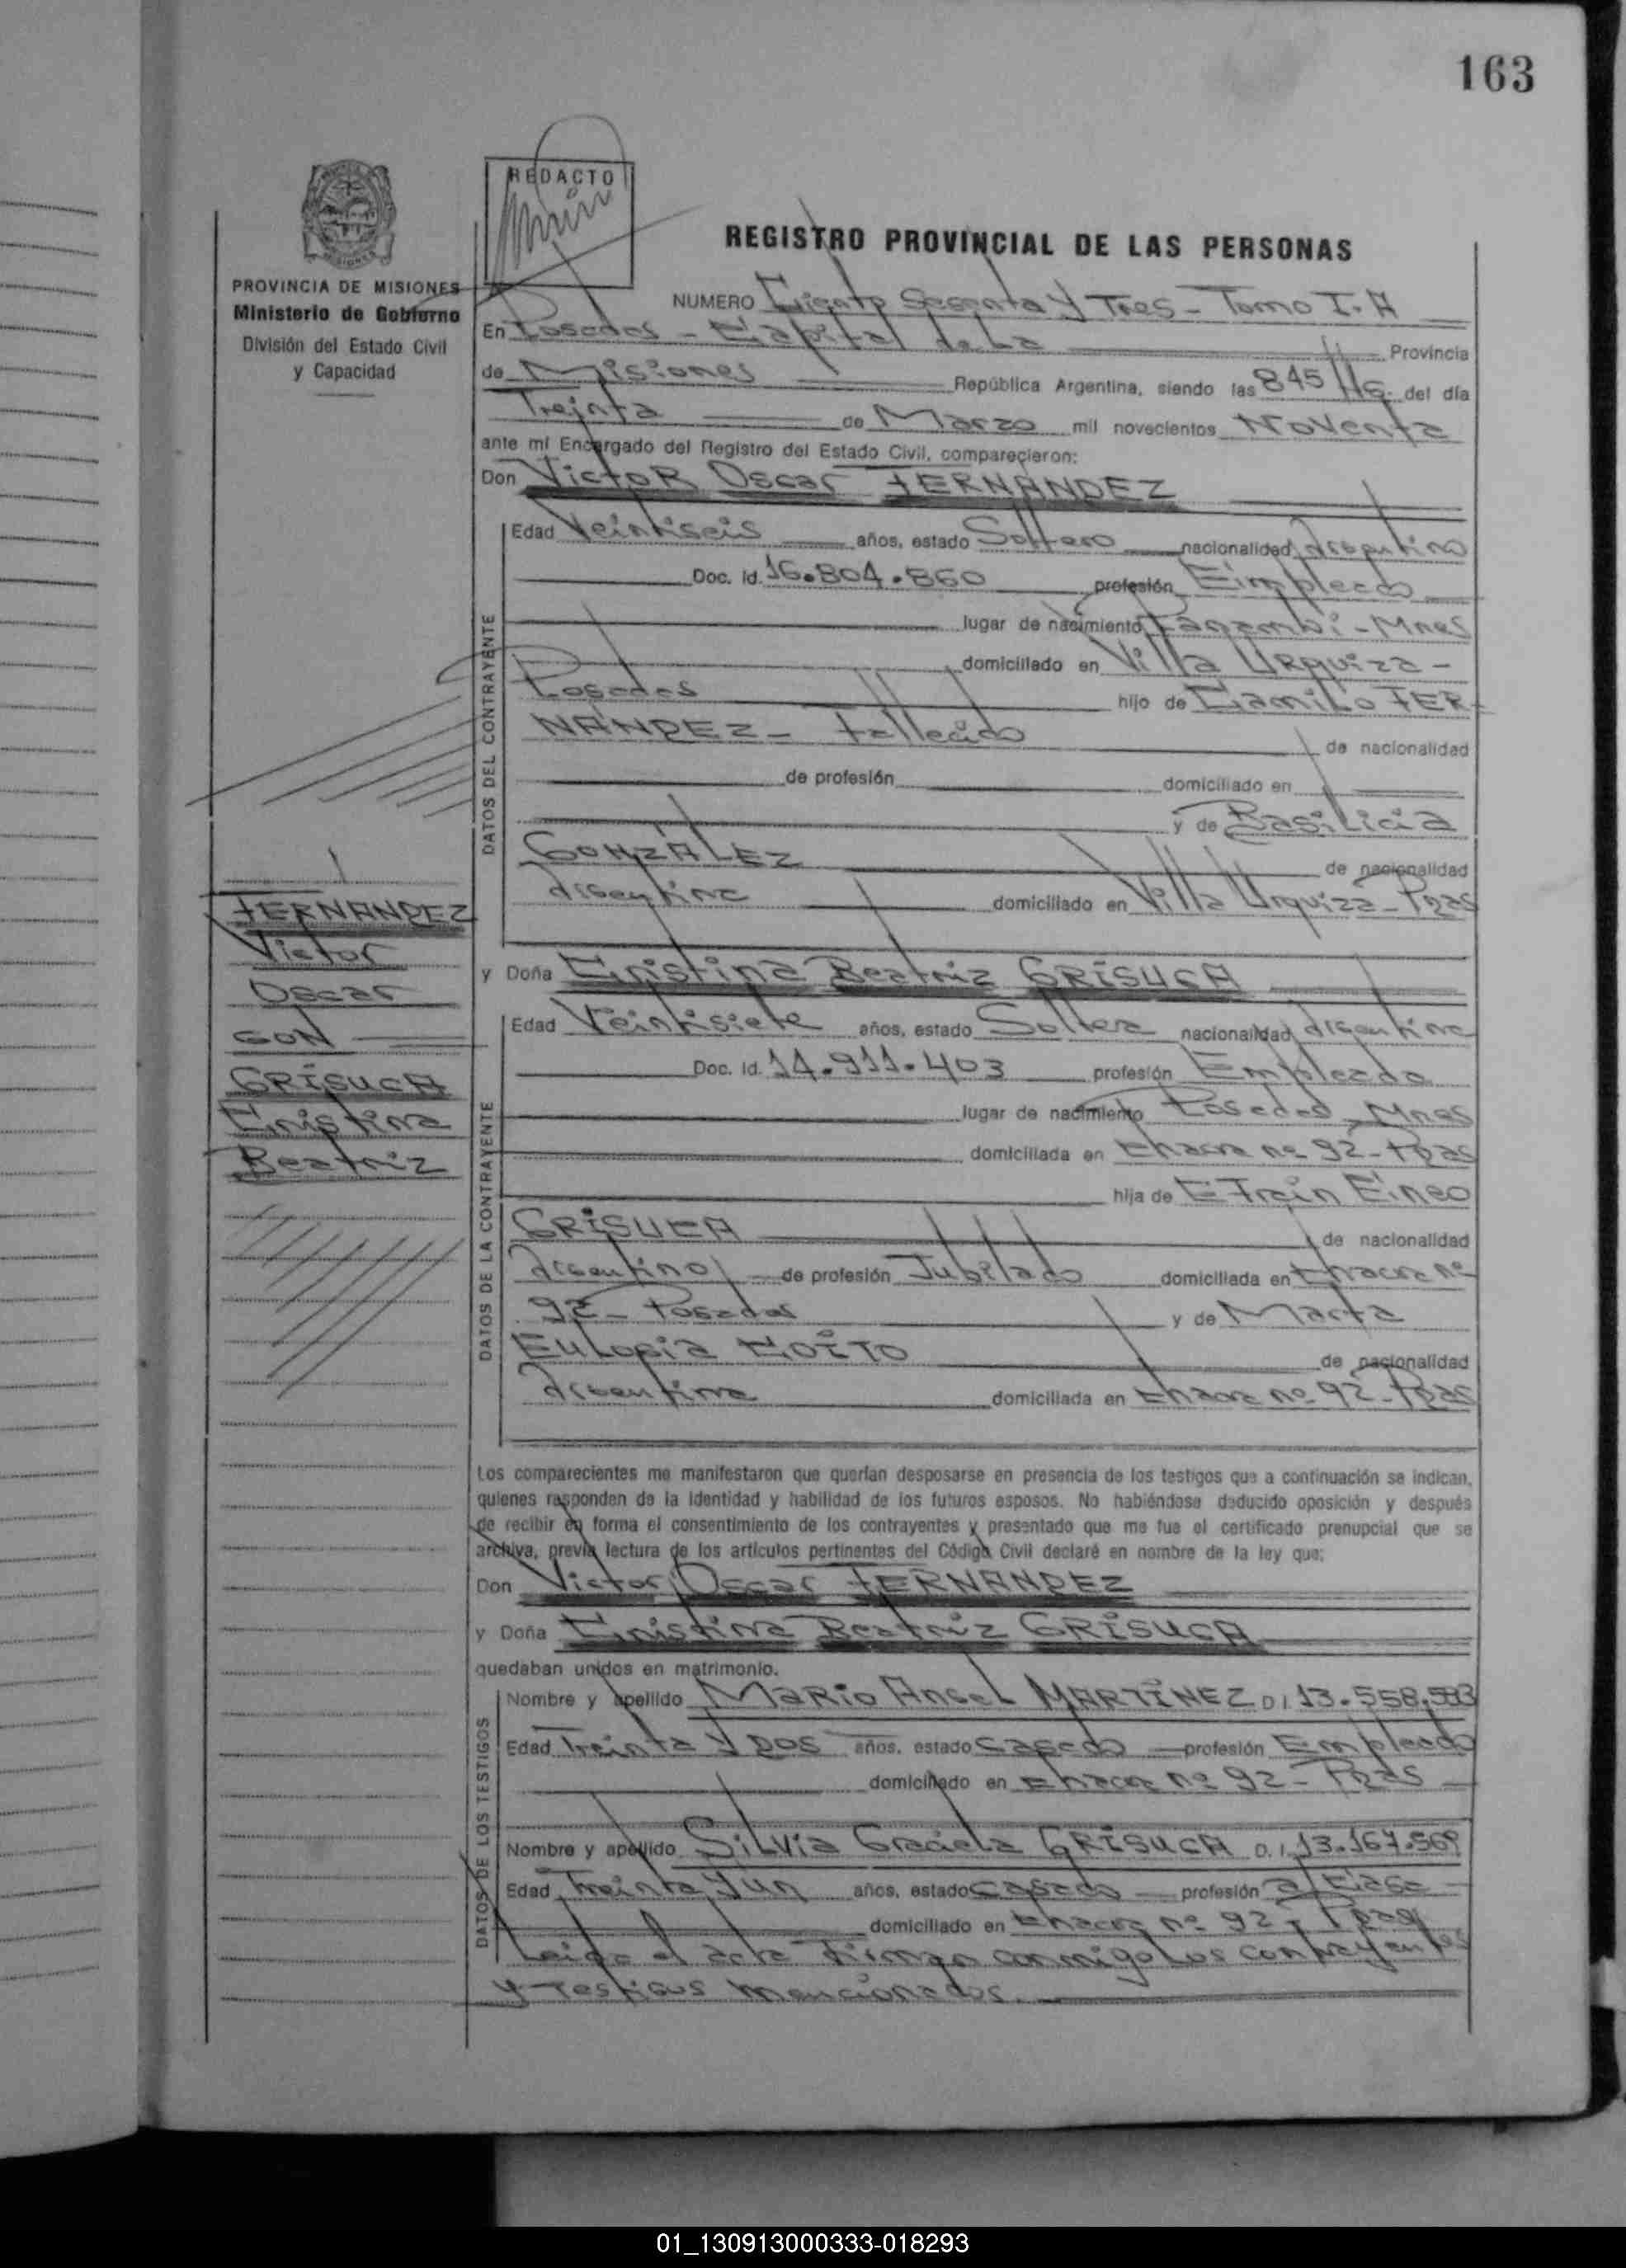 163
REDACTO
REGISTRO PROVINCIAL DE LAS PERSONAS
PROVINCIA DE MISIONES
Ministerio de Gobierno
División del Estado Civil
y Capacidad
NUMERO Ciento Sesenta y Tres - Tomo I. A
En Posadas - Capital de La Provincia
de Misiones República Argentina, siendo las 845 Hs. del día
Treinta de Marzo mil novecientos Noventa
ante mí Encargado del Registro del Estado Civil, comparecieron:
Don Victor Oscar FERNANDEZ
DATOS DEL CONTRAYENTE
Edad Veintiseis años, estado Soltero nacionalidad Argentino
Doc. Id. 16.804.860 profesión Empleado
lugar de nacimiento Panambi - Mnes
domiciliado en Villa Urquiza -
Posadas hijo de Camilo FER-
NANDEZ - Fallecido de nacionalidad
de profesión domiciliado en
y de Basilicia
GONZALEZ de nacionalidad
Argentina domiciliado en Villa Urquiza - Pdas
FERNANDEZ
Victor
Oscar
CON
GRISUCA
Cristina
Beatriz
y Doña Cristina Beatriz GRISUCA
DATOS DE LA CONTRAYENTE
Edad Veintisiete años, estado Soltera nacionalidad Argentina
Doc. Id. 14.911.403 profesión Empleada
lugar de nacimiento Posadas - Mnes
domiciliada en Chacra nº 92 - Pdas
hija de Efrain Eineo
GRISUCA de nacionalidad
Argentino de profesión Jubilado domiciliada en Chacra nº
92 - Posadas y de Marta
Eulogia COITO de nacionalidad
Argentina domiciliada en Chacra nº 92 - Pdas
Los comparecientes me manifestaron que querían desposarse en presencia de los testigos que a continuación se indican,
quienes responden de la identidad y habilidad de los futuros esposos. No habiéndose deducido oposición y después
de recibir en forma el consentimiento de los contrayentes y presentado que me fue el certificado prenupcial que se
archiva, previa lectura de los artículos pertinentes del Código Civil declaré en nombre de la ley que:
Don Victor Oscar FERNANDEZ
y Doña Cristina Beatriz GRISUCA
quedaban unidos en matrimonio.
DATOS DE LOS TESTIGOS
Nombre y apellido Mario Angel MARTINEZ D.I 13.558.
Edad Treinta y Dos años, estado Casado profesión Empleado
domiciliado en Chacra nº 92 - Pdas
Nombre y apellido Silvia Graciela GRISUCA D.I. 13.167.569
Edad Treinta y Un años, estado Casada profesión a/ Casa
domiciliado en Chacra nº 92 - Pdas
Leida el acta Firman conmigo Los contrayentes
y Testigos mencionados.
01_130913000333-018293